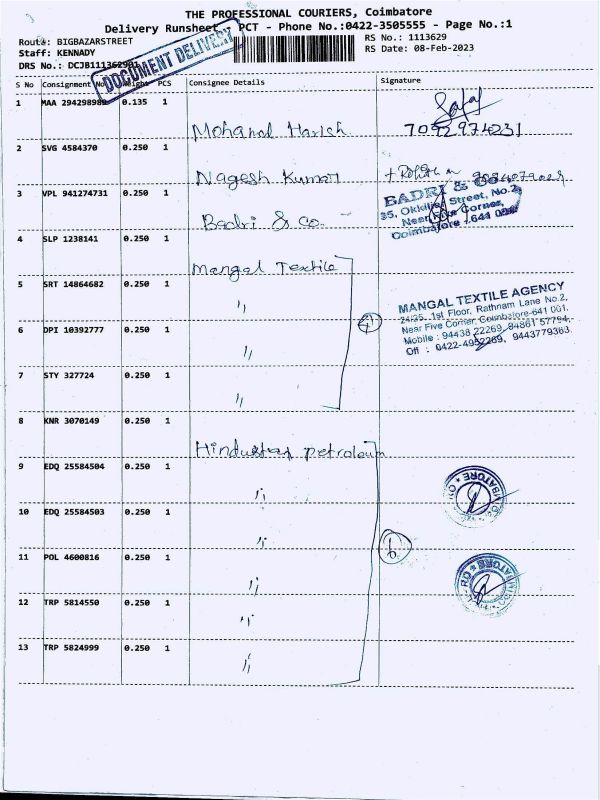 THE PROFESSIONAL COURIERS, Coimbatore
Delivery Runsheet - PCT - Phone No.:0422-3505555 - Page No.:1
Route: BIGBAZARSTREET
RS No.: 1113629
Staff: KENNADY
RS Date: 08-Feb-2023
DRS No.: DCJB111362901
DOCUMENT DELIVERY
S No Consignment No Weight PCS Consignee Details Signature
1 MAA 294298989 0.135 1
Mohanal Harish 7092974231
2 SVG 4584370 0.250 1
Nagesh Kumar
3 VPL 941274731 0.250 1
BADRI & Co
35, Okkiliar Street, No.2,
Near Five Corner,
Coimbatore - 641 001
Badri & co.
4 SLP 1238141 0.250 1
Mangal Textile
5 SRT 14864682 0.250 1
"
MANGAL TEXTILE AGENCY
24/35, 1st Floor, Rathnam Lane No.2,
Near Five Corner, Coimbatore-641 001.
Mobile : 94438 22269, 84861 57794,
Off : 0422-4982269, 9443779363.
4
6 DPI 10392777 0.250 1
"
7 STY 327724 0.250 1
"
8 KNR 3070149 0.250 1
Hindustan petroleum
9 EDQ 25584504 0.250 1
"
10 EDQ 25584503 0.250 1
"
6
11 POL 4600816 0.250 1
"
12 TRP 5814550 0.250 1
"
13 TRP 5824999 0.250 1
"